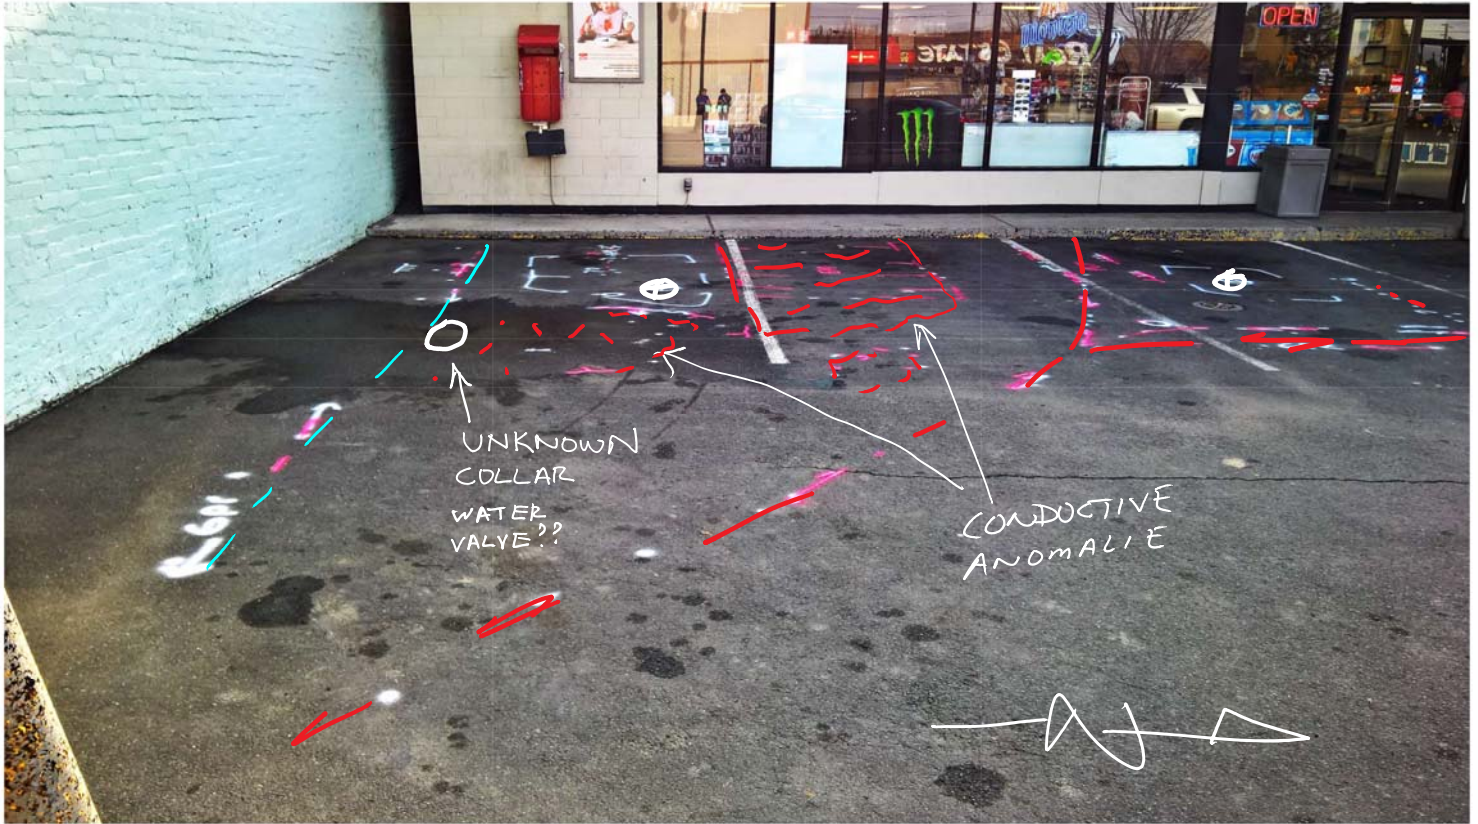 OPEN
UNKNOWN
COLLAR
WATER
VALVE??
CONDUCTIVE
ANOMALIE